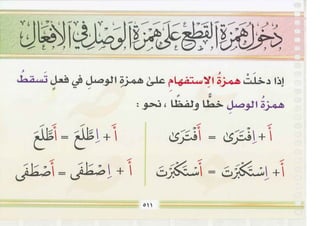 دُخُولُ هَمْزَةِ القَطْعِ عَلَى هَمْزَةِ الوَصْلِ فِي الأَفْعَالِ
إذا دخلَتْ همزةُ الاِستفهامِ على همزةِ الوصلِ في فعلٍ تَسقطُ
همزةُ الوصلِ خطًّا ولفظًا ، نحو :
أَ + اِفْتَرَىٰ = أَفْتَرَىٰ
أَ + اِطَّلَعَ = أَطَّلَعَ
أَ + اِسْتَكْبَرْتَ = أَسْتَكْبَرْتَ
أَ + اِصْطَفَى = أَصْطَفَى
٥١١